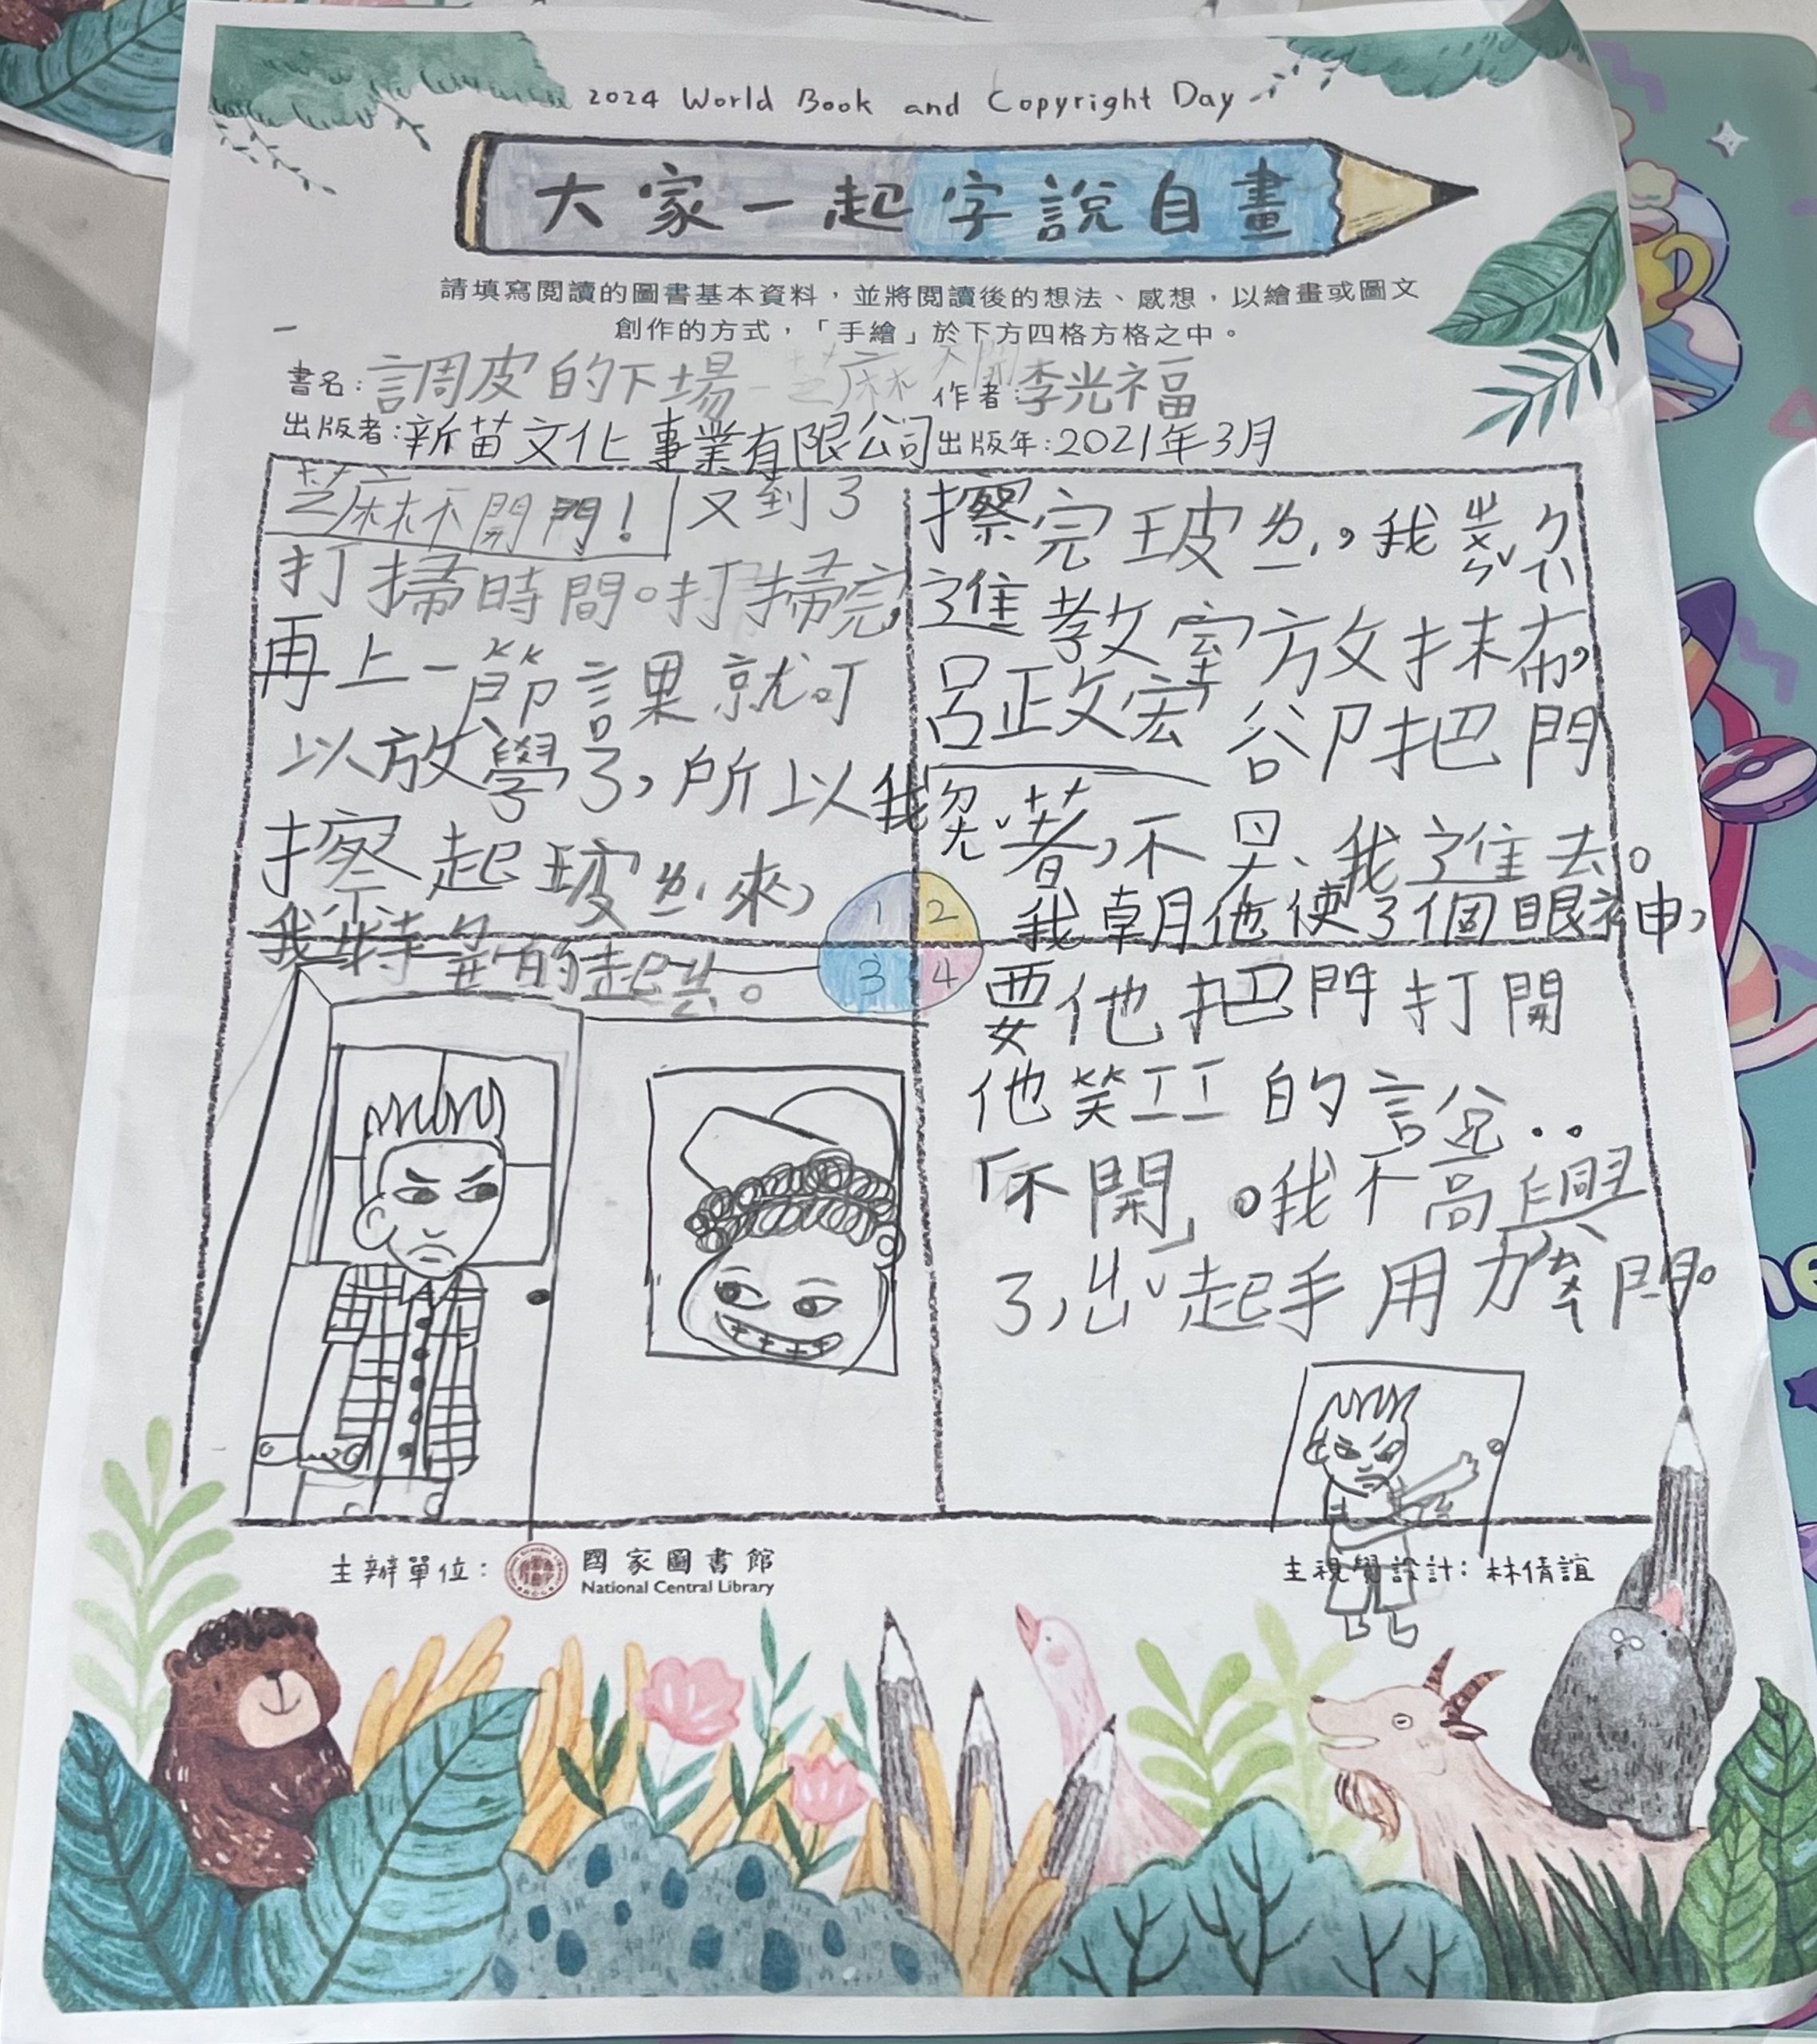 2024 World Book and Copyright Day
大家一起字說自畫
請填寫閱讀的圖書基本資料，並將閱讀後的想法、感想，以繪畫或圖文
創作的方式，「手繪」於下方四格方格之中。
書名：調皮的下場-芝麻不開 作者：李光福
出版者：新苗文化事業有限公司 出版年：2021年3月
芝麻不開門！又到了
打掃時間。打掃完，
再上一節課就可
以放學了，所以我
擦起玻ㄌㄧ來，
我特ㄅㄧㄝ的起ㄐㄧㄥ。
擦完玻ㄌㄧ，我ㄓㄨㄣˇㄅㄟ
進教室放抹布，
呂政宏卻把門
著，不ㄖㄤ我進去。
我朝他使了個眼神，
要他把門打開
他笑ㄒㄒ的說..
「不開」。我不高興
了，ㄐㄩˇ起手用力ㄑㄧㄠ門。
1
2
3
4
主辦單位：
國家圖書館
National Central Library
主視覺設計：林倩誼